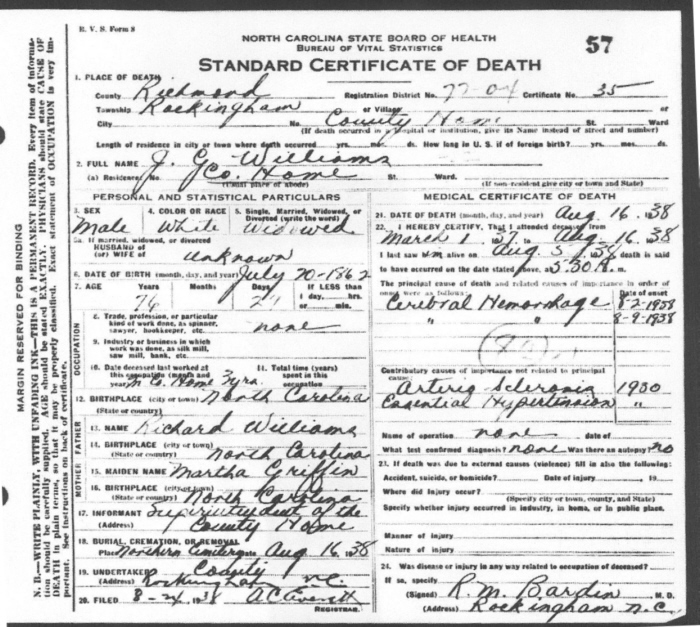 R. V. S. Form 8
NORTH CAROLINA STATE BOARD OF HEALTH
BUREAU OF VITAL STATISTICS
57
STANDARD CERTIFICATE OF DEATH
1. PLACE OF DEATH
County Richmond Registration District No. 77-04 Certificate No. 35
Township Rockingham or Village or
City No. County Home St. Ward
(If death occurred in a hospital or institution, give its Name instead of street and number)
Length of residence in city or town where death occurred yrs. mos. ds. How long in U. S. if of foreign birth? yrs. mos. ds.
2. FULL NAME J. G. Williams
(a) Residence No. Co. Home St. Ward.
(Usual place of abode) (If non-resident give city or town and State)
PERSONAL AND STATISTICAL PARTICULARS
3. SEX Male
4. COLOR OR RACE White
5. Single, Married, Widowed, or Divorced (write the word) Widowed
5a. If married, widowed, or divorced
HUSBAND of
(or) WIFE of unknown
6. DATE OF BIRTH (month, day, and year) July 20-1862
7. AGE Years Months Days If LESS than
76 1 day, hrs.
or min.
OCCUPATION
8. Trade, profession, or particular
kind of work done, as spinner,
sawyer, bookkeeper, etc. none
9. Industry or business in which
work was done, as silk mill,
saw mill, bank, etc.
10. Date deceased last worked at
this occupation (month and
year) in Co. Home 3 yrs.
11. Total time (years)
spent in this
occupation
12. BIRTHPLACE (city or town) North Carolina
(State or country)
FATHER
13. NAME Richard Williams
14. BIRTHPLACE (city or town)
(State or country) North Carolina
MOTHER
15. MAIDEN NAME Martha Griffin
16. BIRTHPLACE (city or town)
(State or country) North Carolina
17. INFORMANT Superintendent of the
(Address) County Home
18. BURIAL, CREMATION, OR REMOVAL
Place Northern Cemetery Date Aug 16, 1938
19. UNDERTAKER County
(Address) Rockingham N.C.
20. FILED 8-24 1938 A C Everett
REGISTRAR.
MEDICAL CERTIFICATE OF DEATH
21. DATE OF DEATH (month, day, and year) Aug. 16. 38
22. I HEREBY CERTIFY, That I attended deceased from
March 1 37 to Aug. 16. 38
I last saw him alive on Aug. 5, 38 death is said
to have occurred on the date stated above, at 5:30 m.
The principal cause of death and related causes of importance in order of
onset were as follows: Date of onset
Cerebral Hemorrhage 8-2-1938
" " 8-9-1938
Contributory causes of importance not related to principal
cause:
Arterio Sclerosis 1930
Essential Hypertension "
Name of operation none date of
What test confirmed diagnosis? none Was there an autopsy? no
23. If death was due to external causes (violence) fill in also the following:
Accident, suicide, or homicide? Date of injury 19
Where did injury occur?
(Specify city or town, county, and State)
Specify whether injury occurred in industry, in home, or in public place.
Manner of injury
Nature of injury
24. Was disease or injury in any way related to occupation of deceased?
If so, specify
(Signed) R. M. Bardin M. D.
(Address) Rockingham N.C.
MARGIN RESERVED FOR BINDING
N. B.—WRITE PLAINLY, WITH UNFADING INK—THIS IS A PERMANENT RECORD. Every item of informa-
tion should be carefully supplied. AGE should be stated EXACTLY. PHYSICIANS should state CAUSE OF
DEATH in plain terms, so that it may be properly classified. Exact statement of OCCUPATION is very im-
portant. See instructions on back of certificate.